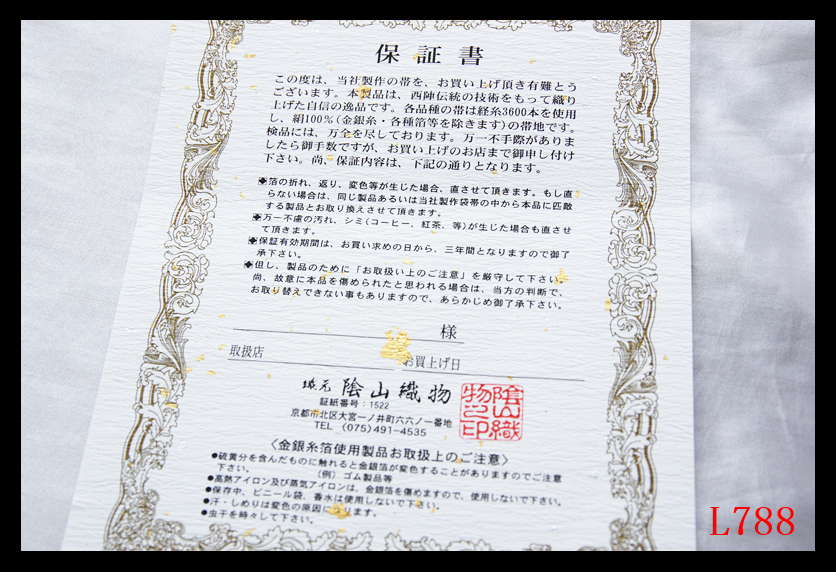 保証書
この度は、当社製作の帯を、お買い上げ頂き有難とう
ございます。本製品は、西陣伝統の技術をもって織り
上げた自信の逸品です。各品種の帯は経糸3600本を使用
し、絹100%(金銀糸・各種箔等を除きます)の帯地です。
検品には、万全を尽しております。万一不手際がありま
したら御手数ですが、お買い上げのお店まで御申し付け
下さい。尚、保証内容は、下記の通りとなります。
◆箔の折れ、返り、変色等が生じた場合、直させて頂きます。もし直
らない場合は、同じ製品あるいは当社製作袋帯の中から本品に匹敵
する製品とお取り換えさせて頂きます。
◆万一不慮の汚れ、シミ(コーヒー、紅茶、等)が生じた場合も直させ
て頂きます。
◆保証有効期間は、お買い求めの日から、三年間となりますので御了
承下さい。
◆但し、製品のために「お取扱い上のご注意」を厳守して下さい。
尚、故意に本品を傷められたと思われる場合は、当方の判断で、
お取り替えできない事もありますので、あらかじめ御了承下さい。
様
取扱店
お買上げ日
織元 陰山織物
証紙番号:1522
京都市北区大宮一ノ井町六六ノ一番地
TEL (075)491-4535
陰山織
物之印
〈金銀糸箔使用製品お取扱上のご注意〉
●硫黄分を含んだものに触れると金銀箔が変色することがありますのでご注意
下さい。 (例)ゴム製品等
●高熱アイロン及び蒸気アイロンは、金銀箔を傷めますので、使用しないで下さい。
●保存中、ビニール袋、香水は使用しないで下さい。
●汗・しめりは変色の原因になります。
●虫干を時々して下さい。
L788